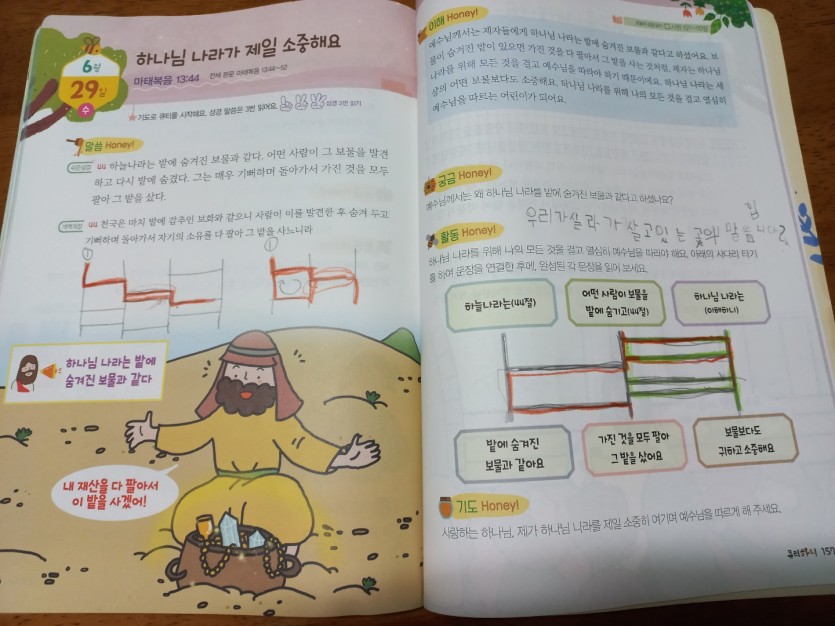 6월
29일
수
하나님 나라가 제일 소중해요
마태복음 13:44 전체 본문 마태복음 13:44~52
★기도로 큐티를 시작해요. 성경 말씀은 3번 읽어요. 성경 3번 읽기
말씀 Honey!
44 하늘나라는 밭에 숨겨진 보물과 같다. 어떤 사람이 그 보물을 발견
하고 다시 밭에 숨겼다. 그는 매우 기뻐하며 돌아가서 가진 것을 모두
팔아 그 밭을 샀다.
개역개정 44 천국은 마치 밭에 감추인 보화와 같으니 사람이 이를 발견한 후 숨겨 두고
기뻐하며 돌아가서 자기의 소유를 다 팔아 그 밭을 사느니라
1
1
하나님 나라는 밭에
숨겨진 보물과 같다
내 재산을 다 팔아서
이 밭을 사겠어!
이해 Honey!
예수님께서는 제자들에게 하나님 나라는 밭에 숨겨진 보물과 같다고 하셨어요. 보
물이 숨겨진 밭이 있으면 가진 것을 다 팔아서 그 밭을 사는 것처럼, 제자는 하나님
나라를 위해 모든 것을 걸고 예수님을 따라야 하기 때문이에요. 하나님 나라는 세
상의 어떤 보물보다도 소중해요. 하나님 나라를 위해 나의 모든 것을 걸고 열심히
예수님을 따르는 어린이가 되어요.
궁금 Honey!
예수님께서는 왜 하나님 나라를 밭에 숨겨진 보물과 같다고 하셨나요?
활동 Honey!
하나님 나라를 위해 나의 모든 것을 걸고 열심히 예수님을 따라야 해요. 아래의 사다리 타기
를 하여 문장을 연결한 후에, 완성된 각 문장을 읽어 보세요.
하늘나라는(44절)
어떤 사람이 보물을
밭에 숨기고(44절)
하나님 나라는
(이해하니)
밭에 숨겨진
보물과 같아요
가진 것을 모두 팔아
그 밭을 샀어요
보물보다도
귀하고 소중해요
기도 Honey!
사랑하는 하나님, 제가 하나님 나라를 제일 소중히 여기며 예수님을 따르게 해 주세요.
157